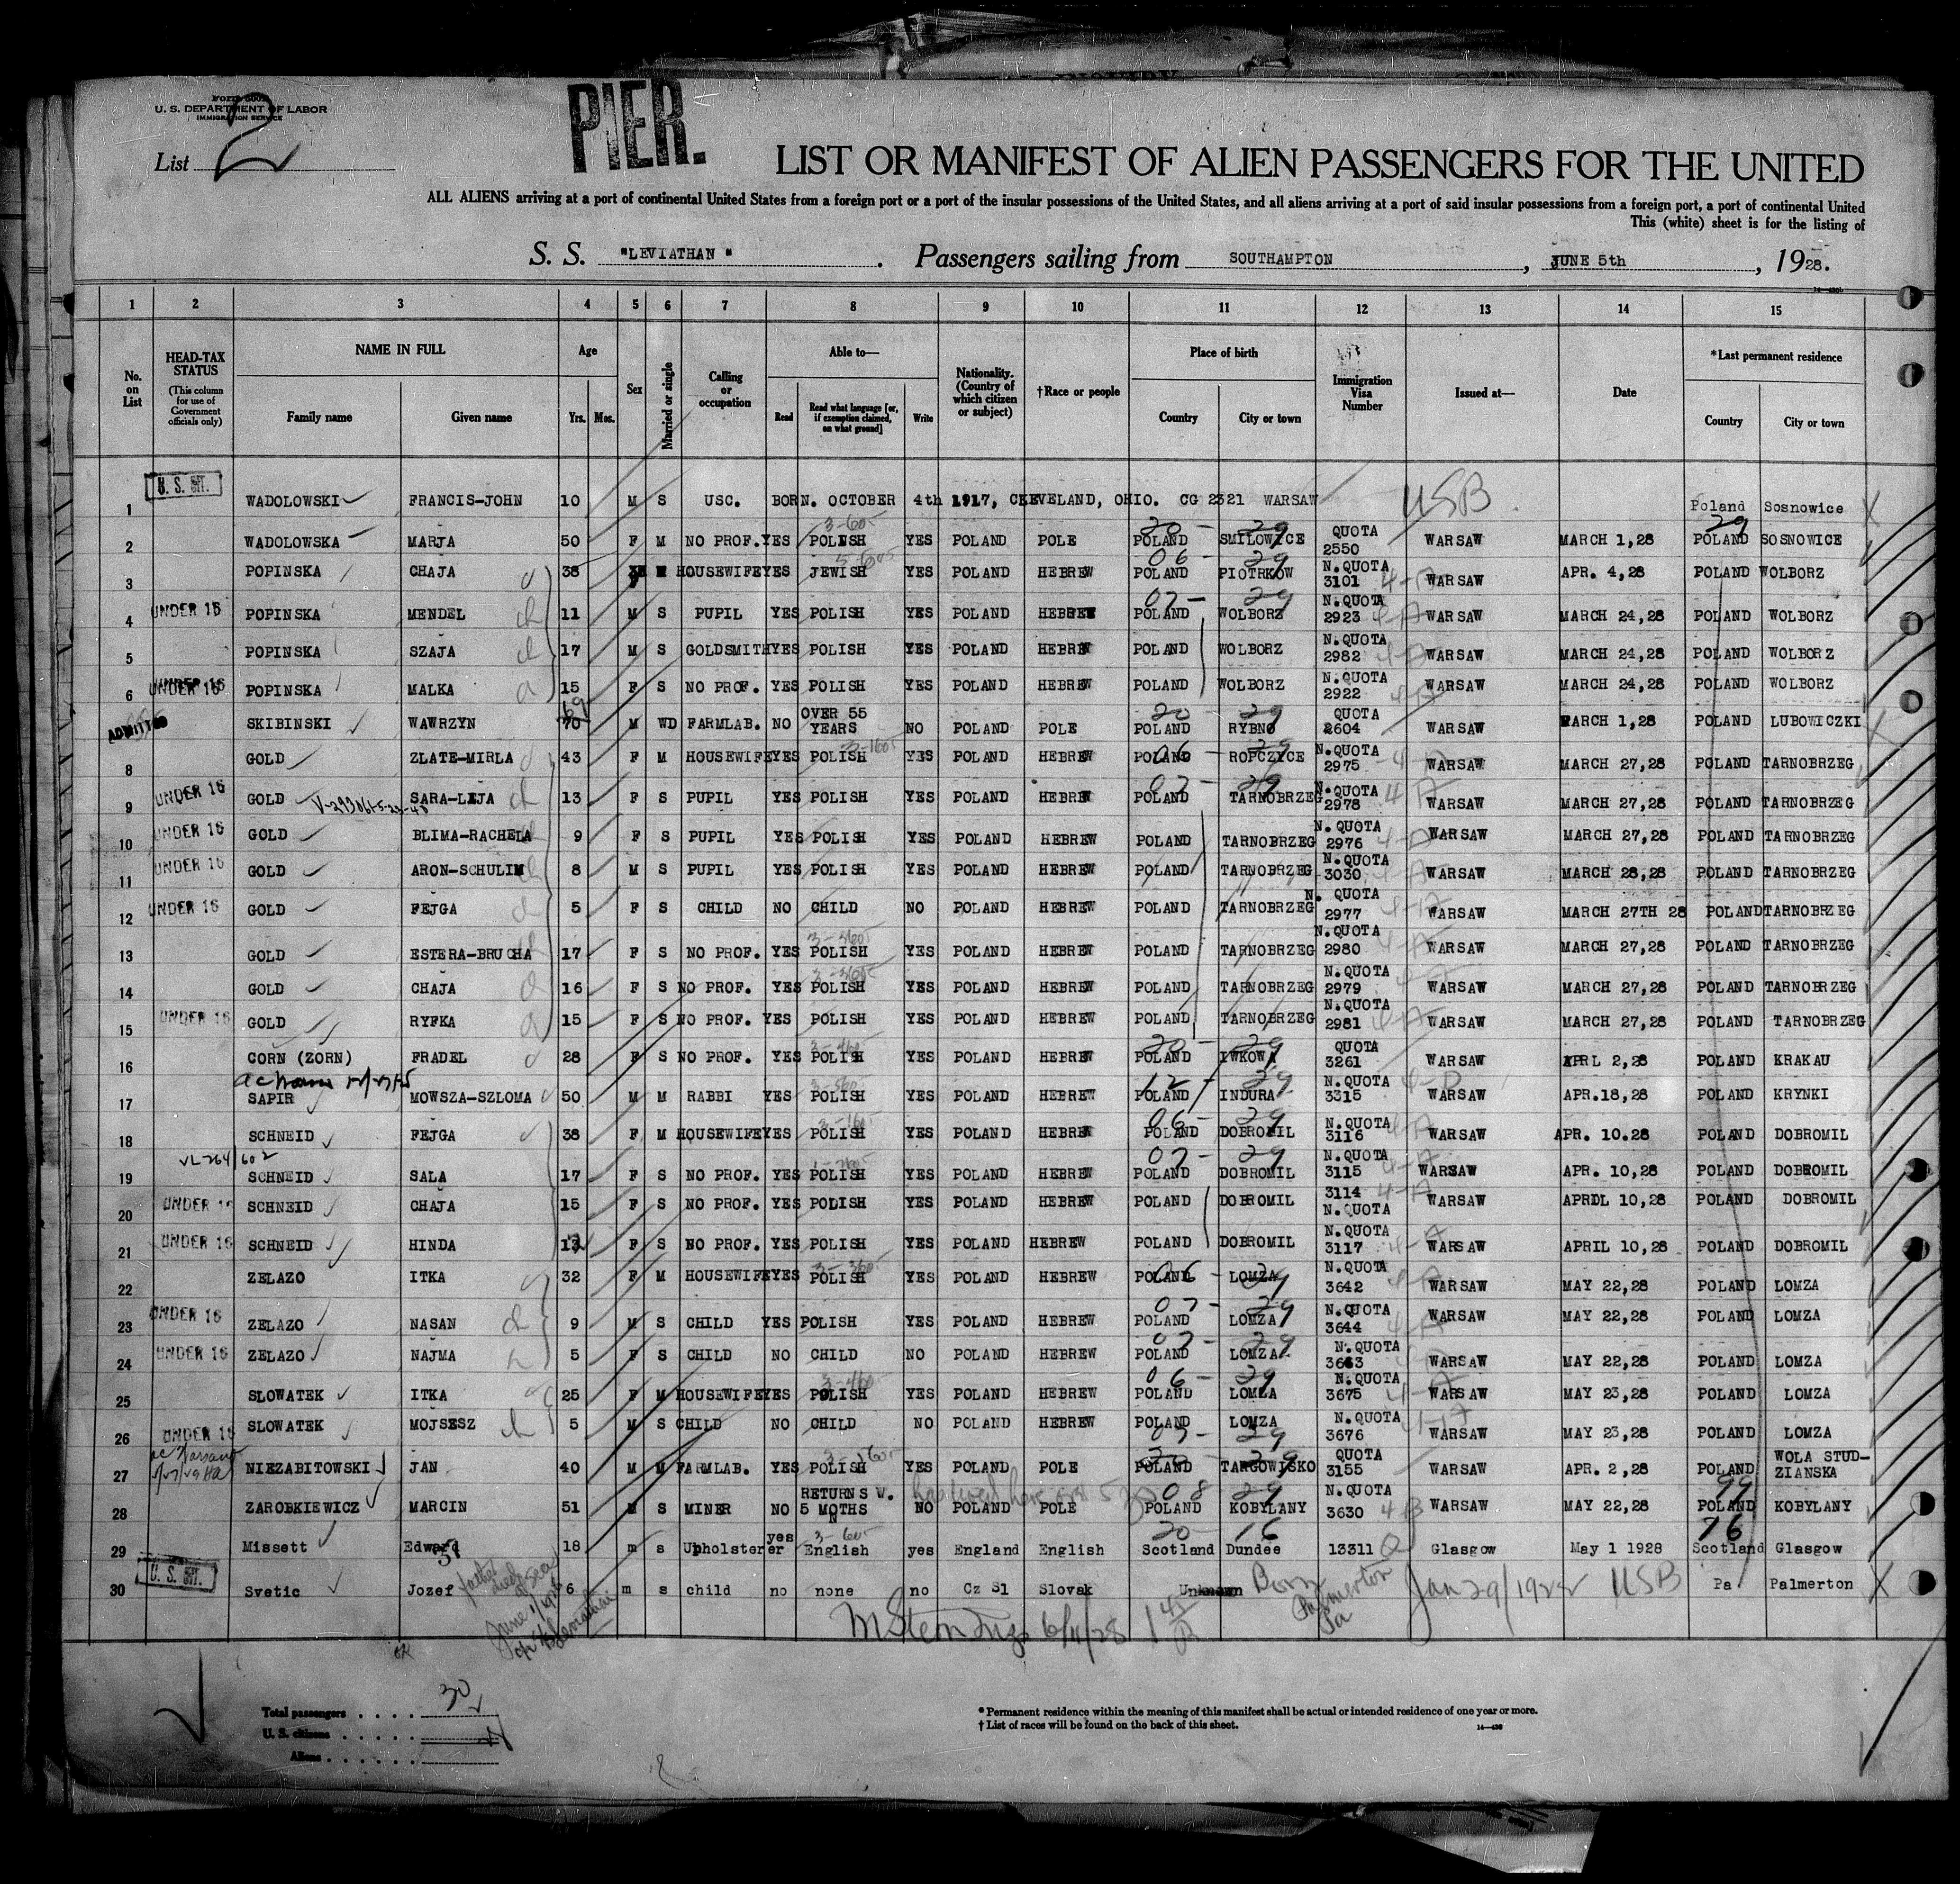 Form 500
U. S. DEPARTMENT OF LABOR
IMMIGRATION SERVICE
List 2
PIER.
LIST OR MANIFEST OF ALIEN PASSENGERS FOR THE UNITED
ALL ALIENS arriving at a port of continental United States from a foreign port or a port of the insular possessions of the United States, and all aliens arriving at a port of said insular possessions from a foreign port, a port of continental United
This (white) sheet is for the listing of
S. S. "LEVIATHAN" . Passengers sailing from SOUTHAMPTON , JUNE 5th , 1928.
1 2 3 4 5 6 7 8 9 10 11 12 13 14 15
No. on List HEAD-TAX STATUS (This column for use of Government officials only) NAME IN FULL Family name Given name Age Yrs. Mos. Sex Married or single Calling or occupation Able to— Read Read what language [or, if exemption claimed, on what ground] Write Nationality. (Country of which citizen or subject) †Race or people Place of birth Country City or town Immigration Visa Number Issued at— Date *Last permanent residence Country City or town
1 U. S. CIT. WADOLOWSKI FRANCIS-JOHN 10 M S USC. BORN. OCTOBER 4th 1917, CKEVELAND, OHIO. CG 2321 WARSAW USB Poland Sosnowice
2 WADOLOWSKA MARJA 50 F M NO PROF. YES POLISH YES POLAND POLE POLAND SMILOWICE QUOTA 2550 WARSAW MARCH 1,28 POLAND SOSNOWICE
3 POPINSKA CHAJA 38 F M HOUSEWIFE YES JEWISH YES POLAND HEBREW POLAND PIOTRKOW N.QUOTA 3101 WARSAW APR. 4,28 POLAND WOLBORZ
4 UNDER 16 POPINSKA MENDEL 11 M S PUPIL YES POLISH YES POLAND HEBREW POLAND WOLBORZ N.QUOTA 2923 WARSAW MARCH 24,28 POLAND WOLBORZ
5 POPINSKA SZAJA 17 M S GOLDSMITH YES POLISH YES POLAND HEBREW POLAND WOLBORZ N.QUOTA 2982 WARSAW MARCH 24,28 POLAND WOLBORZ
6 UNDER 16 POPINSKA MALKA 15 F S NO PROF. YES POLISH YES POLAND HEBREW POLAND WOLBORZ N.QUOTA 2922 WARSAW MARCH 24,28 POLAND WOLBORZ
ADMITTED SKIBINSKI WAWRZYN 70 69 M WD FARMLAB. NO OVER 55 YEARS NO POLAND POLE POLAND RYBNO QUOTA 2604 WARSAW MARCH 1,28 POLAND LUBOWICZKI
8 GOLD ZLATE-MIRLA 43 F M HOUSEWIFE YES POLISH YES POLAND HEBREW POLAND ROPCZYCE N.QUOTA 2975 WARSAW MARCH 27,28 POLAND TARNOBRZEG
9 UNDER 16 GOLD SARA-LEJA 13 F S PUPIL YES POLISH YES POLAND HEBREW POLAND TARNOBRZEG N.QUOTA 2978 WARSAW MARCH 27,28 POLAND TARNOBRZEG
10 UNDER 16 GOLD BLIMA-RACHELA 9 F S PUPIL YES POLISH YES POLAND HEBREW POLAND TARNOBRZEG N.QUOTA 2976 WARSAW MARCH 27,28 POLAND TARNOBRZEG
11 UNDER 16 GOLD ARON-SCHULIM 8 M S PUPIL YES POLISH YES POLAND HEBREW POLAND TARNOBRZEG N.QUOTA 3030 WARSAW MARCH 28,28 POLAND TARNOBRZEG
12 UNDER 16 GOLD FEJGA 5 F S CHILD NO CHILD NO POLAND HEBREW POLAND TARNOBRZEG N. QUOTA 2977 WARSAW MARCH 27TH 28 POLAND TARNOBRZEG
13 GOLD ESTERA-BRUCHA 17 F S NO PROF. YES POLISH YES POLAND HEBREW POLAND TARNOBRZEG N.QUOTA 2980 WARSAW MARCH 27,28 POLAND TARNOBRZEG
14 GOLD CHAJA 16 F S NO PROF. YES POLISH YES POLAND HEBREW POLAND TARNOBRZEG N.QUOTA 2979 WARSAW MARCH 27,28 POLAND TARNOBRZEG
15 UNDER 16 GOLD RYFKA 15 F S NO PROF. YES POLISH YES POLAND HEBREW POLAND TARNOBRZEG N.QUOTA 2981 WARSAW MARCH 27,28 POLAND TARNOBRZEG
16 CORN (ZORN) FRADEL 28 F S NO PROF. YES POLISH YES POLAND HEBREW POLAND IWKOWA QUOTA 3261 WARSAW APRL 2,28 POLAND KRAKAU
17 SAPIR MOWSZA-SZLOMA 50 M M RABBI YES POLISH YES POLAND HEBREW POLAND INDURA N.QUOTA 3315 WARSAW APR.18,28 POLAND KRYNKI
18 SCHNEID FEJGA 38 F M HOUSEWIFE YES POLISH YES POLAND HEBREW POLAND DOBROMIL N.QUOTA 3116 WARSAW APR. 10.28 POLAND DOBROMIL
19 SCHNEID SALA 17 F S NO PROF. YES POLISH YES POLAND HEBREW POLAND DOBROMIL N.QUOTA 3115 WARSAW APR. 10,28 POLAND DOBROMIL
20 UNDER 16 SCHNEID CHAJA 15 F S NO PROF. YES POLISH YES POLAND HEBREW POLAND DOBROMIL 3114 N.QUOTA WARSAW APRIL 10,28 POLAND DOBROMIL
21 UNDER 16 SCHNEID HINDA 13 F S NO PROF. YES POLISH YES POLAND HEBREW POLAND DOBROMIL N.QUOTA 3117 WARSAW APRIL 10,28 POLAND DOBROMIL
22 ZELAZO ITKA 32 F M HOUSEWIFE YES POLISH YES POLAND HEBREW POLAND LOMZA N.QUOTA 3642 WARSAW MAY 22,28 POLAND LOMZA
23 UNDER 16 ZELAZO NASAN 9 M S CHILD YES POLISH YES POLAND HEBREW POLAND LOMZA N.QUOTA 3644 WARSAW MAY 22,28 POLAND LOMZA
24 UNDER 16 ZELAZO NAJMA 5 F S CHILD NO CHILD NO POLAND HEBREW POLAND LOMZA N.QUOTA 3643 WARSAW MAY 22,28 POLAND LOMZA
25 SLOWATEK ITKA 25 F M HOUSEWIFE YES POLISH YES POLAND HEBREW POLAND LOMZA N.QUOTA 3675 WARSAW MAY 23,28 POLAND LOMZA
26 UNDER 16 SLOWATEK MOJSESZ 5 M S CHILD NO CHILD NO POLAND HEBREW POLAND LOMZA N.QUOTA 3676 WARSAW MAY 23,28 POLAND LOMZA
27 NIEZABITOWSKI JAN 40 M M FARMLAB. YES POLISH YES POLAND POLE POLAND TARGOWISKO QUOTA 3155 WARSAW APR. 2,28 POLAND WOLA STUD-ZIANSKA
28 ZAROBKIEWICZ MARCIN 51 M S MINER NO RETURNS W. 5 MOTHS NO POLAND POLE POLAND KOBYLANY N.QUOTA 3630 WARSAW MAY 22,28 POLAND KOBYLANY
29 Missett Edward 18 m s Upholsterer yes English yes England English Scotland Dundee 13311 Glasgow May 1 1928 Scotland Glasgow
30 U. S. CIT. Svetic Jozef 6 m s child no none no Cz Sl Slovak Unknown Born Palmerton Pa Jan 29/1922 USB Pa Palmerton
father died at sea June 1928 on SS Leviathan
6/11/28
Total passengers . . . . 30
U. S. citizens . . . . .
Aliens . . . . . .
* Permanent residence within the meaning of this manifest shall be actual or intended residence of one year or more.
† List of races will be found on the back of this sheet.